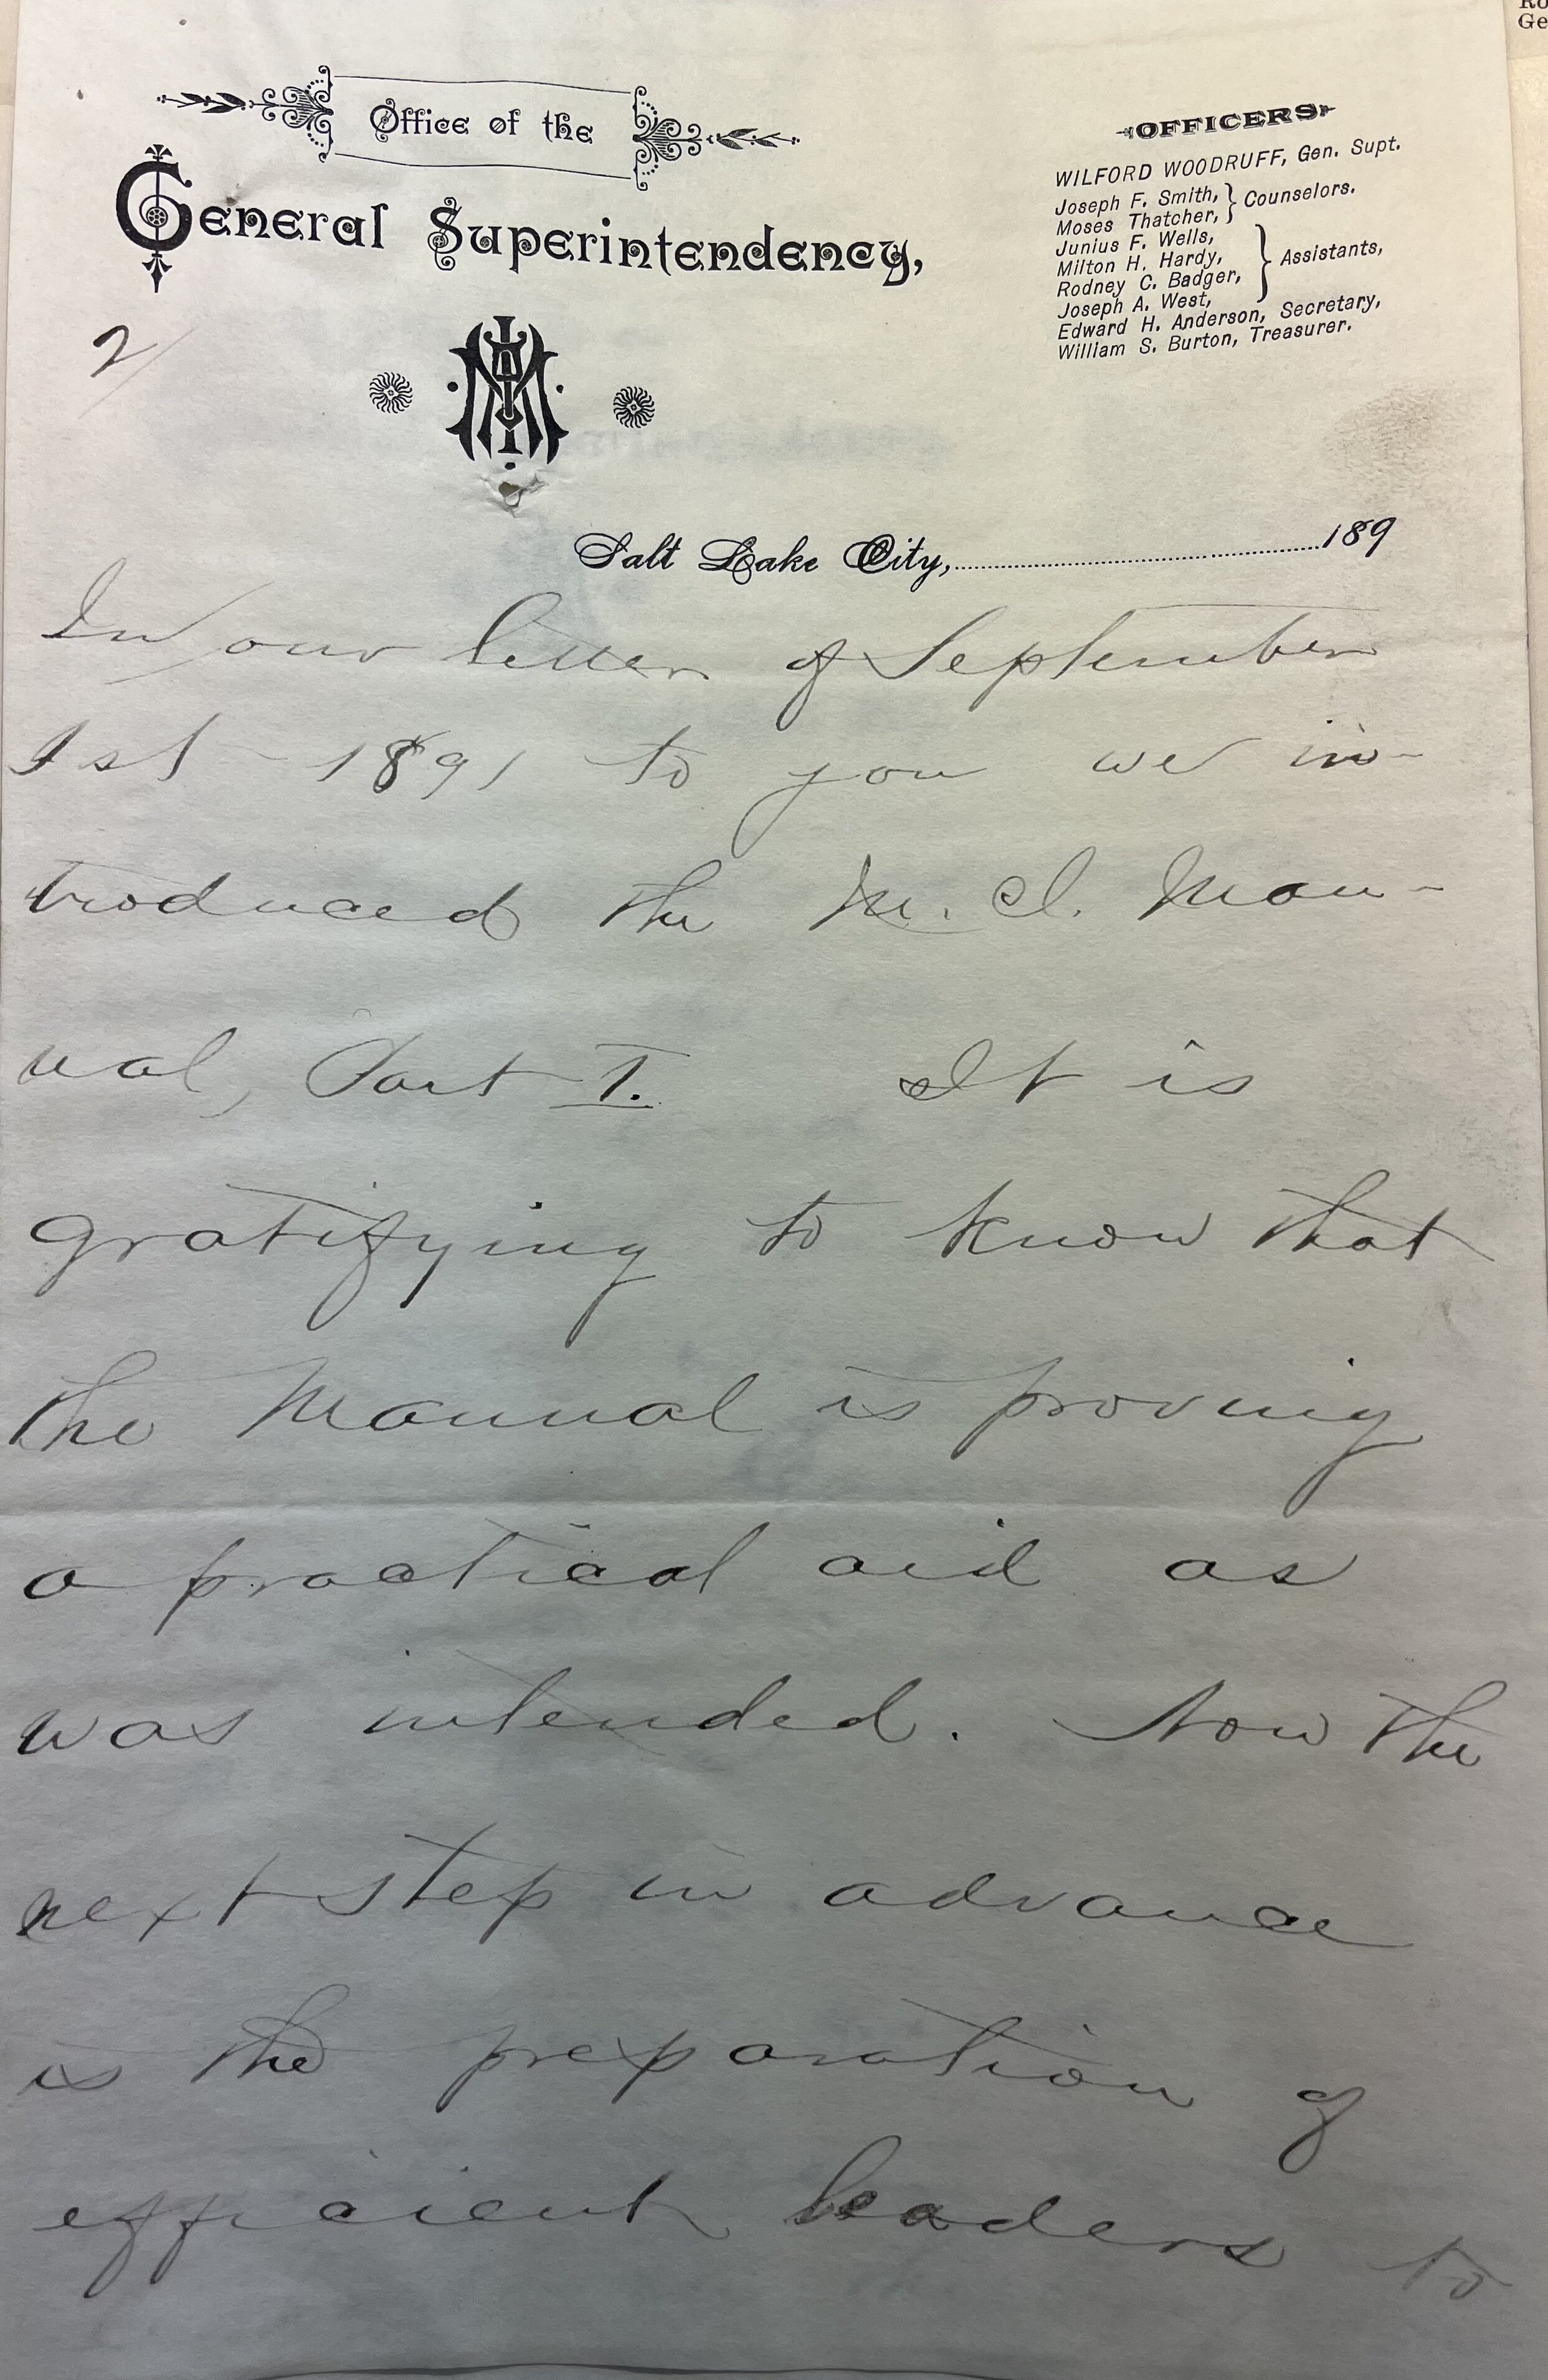 Ro
Ge
Office of the
General Superintendency,
OFFICERS
WILFORD WOODRUFF, Gen. Supt.
Joseph F. Smith,
Moses Thatcher, } Counselors.
Junius F. Wells,
Milton H. Hardy,
Rodney C. Badger, } Assistants,
Joseph A. West,
Edward H. Anderson, Secretary,
William S. Burton, Treasurer.
2/
Salt Lake City, 189
In our letter of September
1st - 1891 to you we in-
troduced the M. I. Man-
ual, Part I. It is
gratifying to know that
the Manual is proving
a practical aid as
was intended. Now the
next step in advance
is the preparation of
efficient leaders to